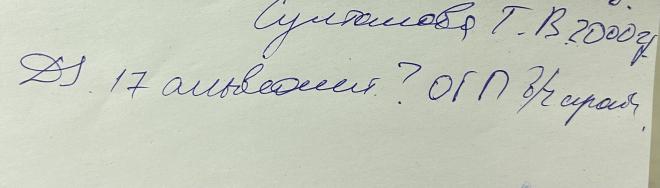 Султанова Т.В. 2000г
DS. 17 альвеолит? ОПГ в/ч